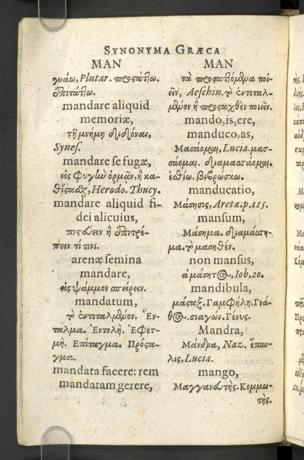 SYNONYMA GRÆCA
MAN
γράω, Plutar. προστάττω.
ἐπιτάττω.
mandare aliquid
memoriæ,
τῇ μνήμῃ διδόναι,
Synes.
mandare se fugæ,
εἰς φυγὼ ὁρμᾶν, ἢ κα-
Herodo. Thucy.
mandare aliquid fi-
dei alicuius,
ἢ ἐπιτρέ-
πειν τί τινι.
arenæ semina
mandare,
εἰς ψάμμον σπείρειν.
mandatum,
τὸ ἐντεταλμένον. Ἔν-
ταλμα. Ἐντολή. Ἐφετ-
μή. Ἐπίταγμα. Πρόστα-
γμα.
mandata facere: rem
mandatam gerere,
MAN
τὰ προστατ]όμενα ποι-
εῖν, Aeschin. τὸ ἐντεταλ-
μένον ἢ προσταχθὲν ποιεῖν.
mando, is, ere,
manduco, as,
Μασάομαι, Lucia. μασ-
σάομαι. διαμασσάομαι.
ἐσθίω. βιβρώσκω.
manducatio,
Μάσησις, Areta. p.115.
mansum,
Μάσημα. διαμάσση-
μα. τὸ μασηθέν.
non mansus,
ἀμάσητος, Iob, 20.
mandibula,
μάσταξ. Γαμφήλη. Γνά-
θος. σιαγών. Γένυς.
Mandra,
Μάνδρα, Naz. ἔπαυ-
λις, Lucia.
mango,
Μαγγανευτής. Κομμω-
τής.